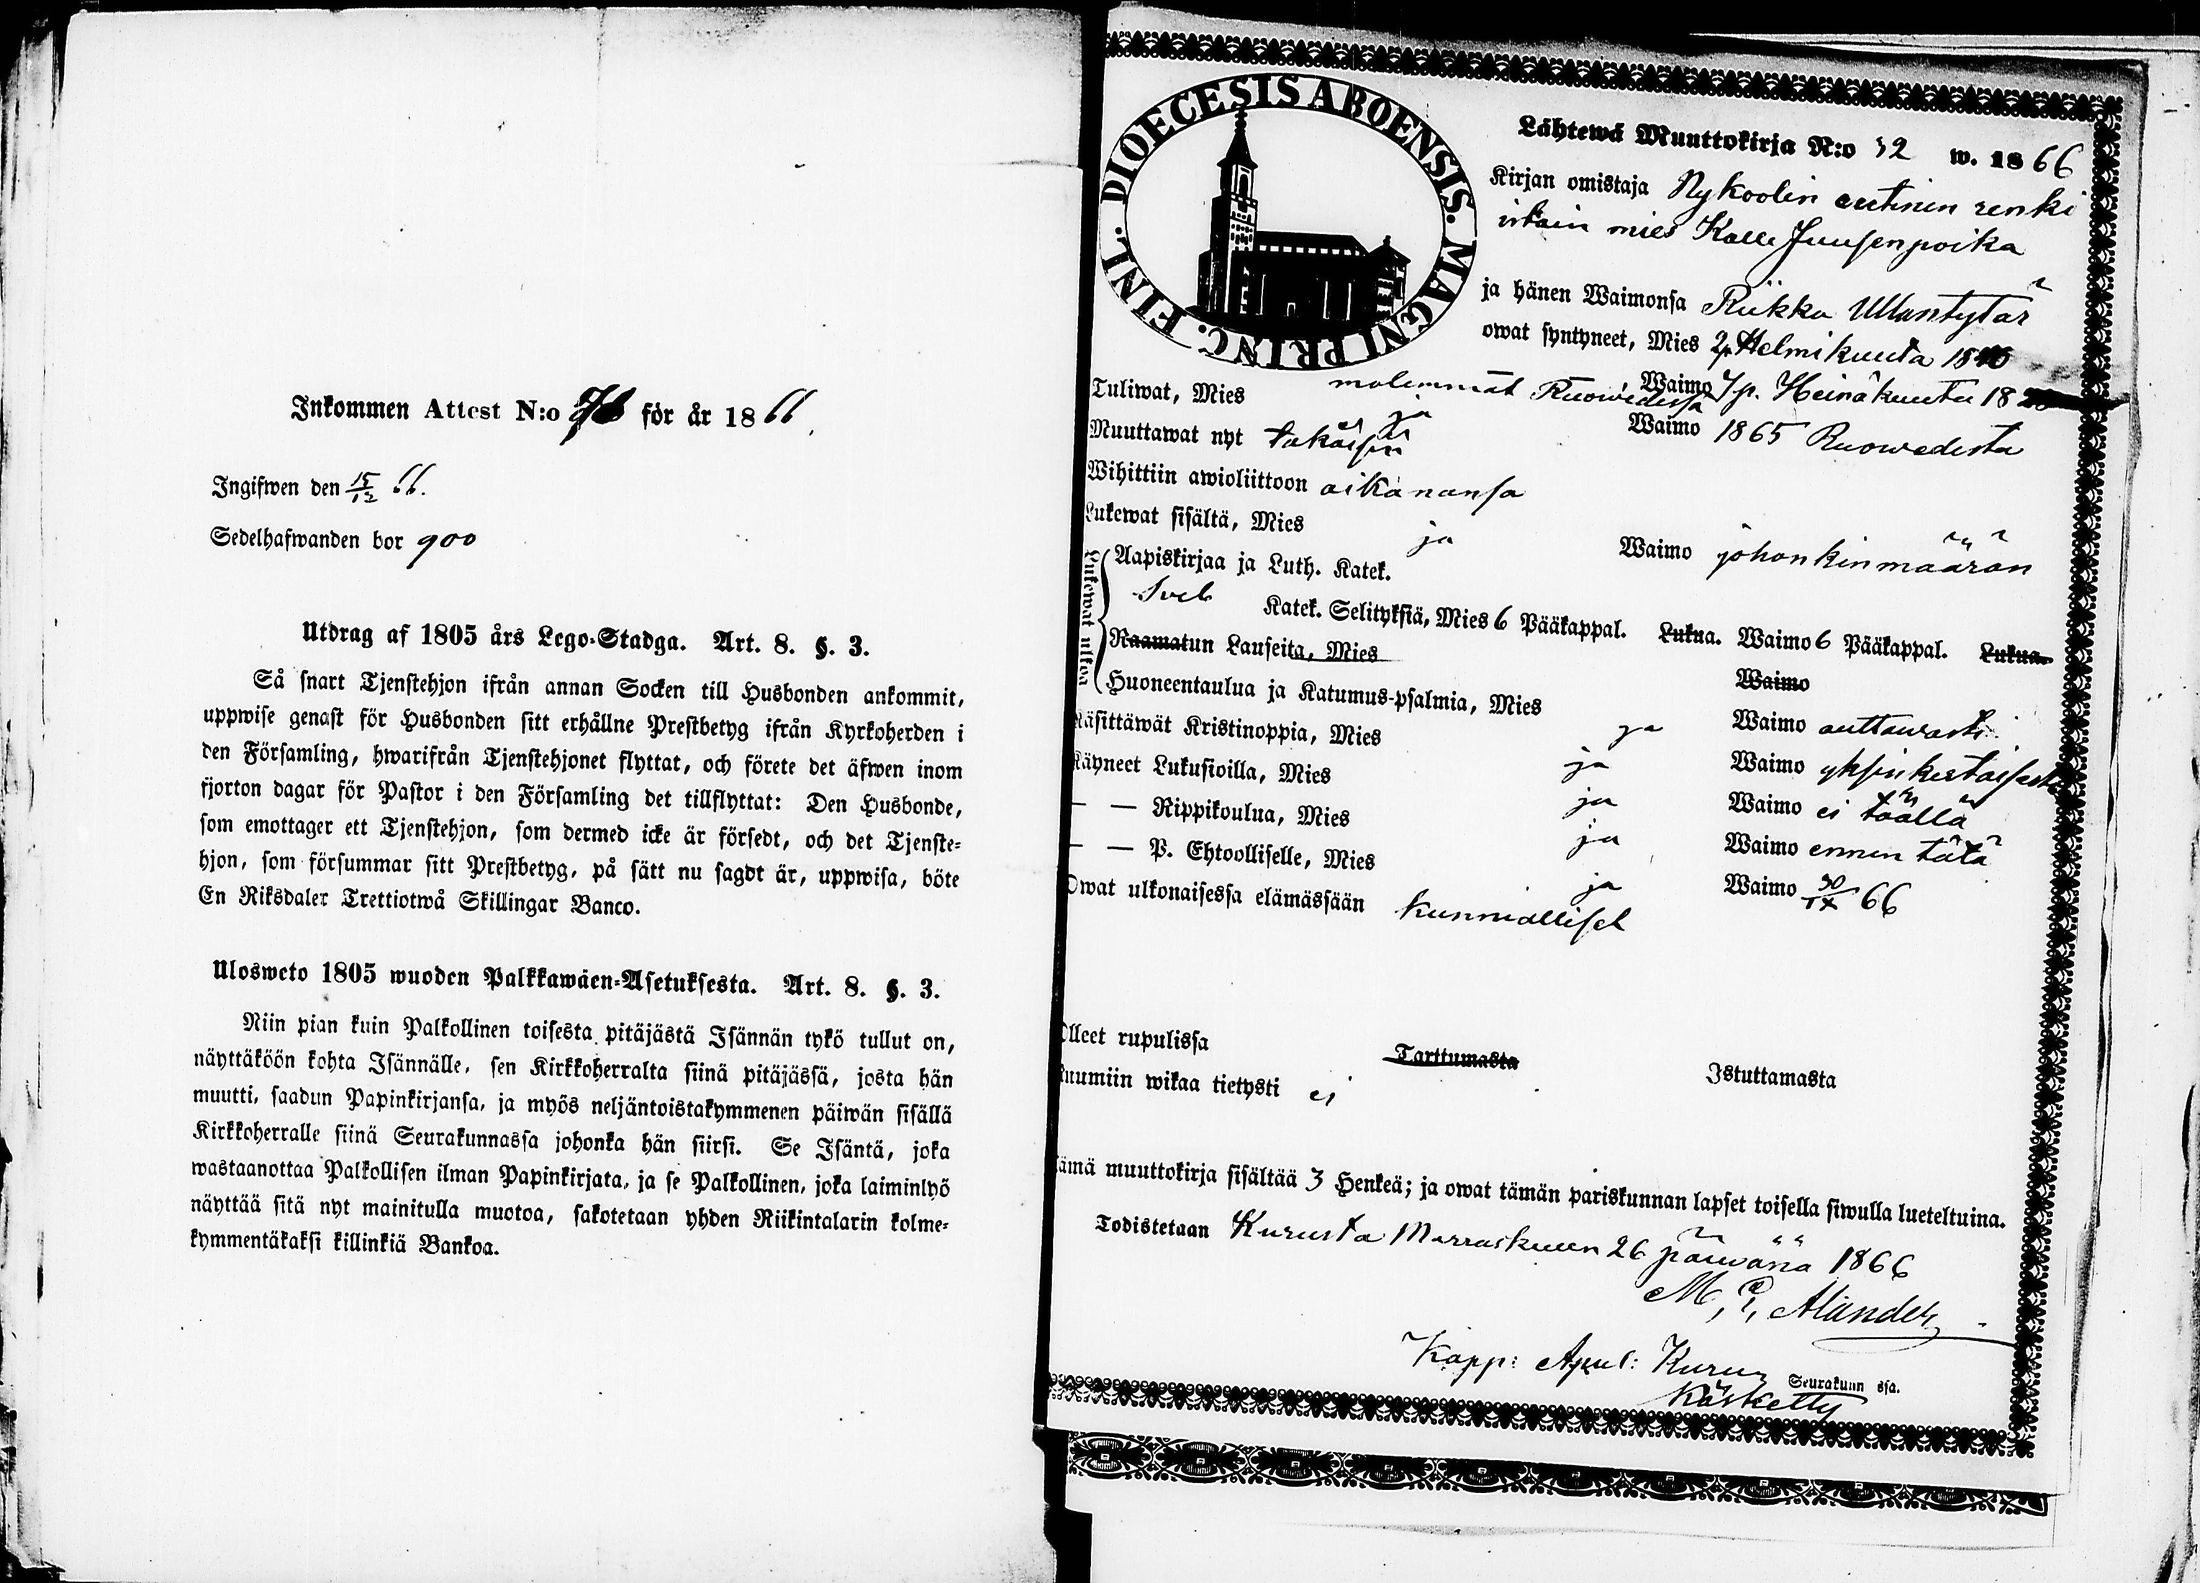 Inkommen Attest N:o för år 1866.
Ingifwen den 15/12 66.
Sedelhafwanden bor 900
Utdrag af 1805 års Lego-Stadga. Art. 8. §. 3.
Så snart Tjenstehjon ifrån annan Socken till Husbonden ankommit,
uppwise genast för Husbonden sitt erhållne Prestbetyg ifrån Kyrkoherden i
den Församling, hwarifrån Tjenstehjonet flyttat, och förete det äfwen inom
fjorton dagar för Pastor i den Församling det tillflyttat: Den Husbonde,
som emottager ett Tjenstehjon, som dermed icke är försedt, och det Tjenste-
hjon, som försummar sitt Prestbetyg, på sätt nu sagdt är, uppwisa, böte
En Riksdaler Trettiotwå Skillingar Banco.
Ulosweto 1805 wuoden Palkkawäen-Asetuksesta. Art. 8. §. 3.
Niin pian kuin Palkollinen toisesta pitäjästä Isännän tykö tullut on,
näyttäköön kohta Isännälle, sen Kirkkoherralta siinä pitäjässä, josta hän
muutti, saadun Papinkirjansa, ja myös neljäntoistakymmenen päiwän sisällä
Kirkkoherralle siinä Seurakunnassa johonka hän siirsi. Se Isäntä, joka
wastaanottaa Palkollisen ilman Papinkirjata, ja se Palkollinen, joka laiminlyö
näyttää sitä nyt mainitulla muotoa, sakotetaan yhden Riikintalarin kolme-
kymmentäkaksi killinkiä Bankoa.
DIOECESIS ABOENSIS. MAGNI PRINC. FINL.
Lähtewä Muuttokirja N:o 32 w. 1866
Kirjan omistaja Nykoolin entinen renki
irtain mies Kalle Juusenpoika
ja hänen Waimonsa Riikka Ullantytär
owat syntyneet, Mies 2 p. Helmikuuta 1840
Waimo 7 p. Heinäkuuta 18
Tuliwat, Mies molemmat Ruowedessä
Waimo 1865 Ruowedestä
Muuttawat nyt takaisin
Wihittiin awioliittoon aikanansa
Lukewat sisältä, Mies ja Waimo johonkin määrän
Lukewat ulkoa
Aapiskirjaa ja Luth. Katek.
Katek. Selityksiä, Mies 6 Pääkappal. Lukua. Waimo 6 Pääkappal. Lukua.
Raamatun Lauseita, Mies Waimo
Huoneentaulua ja Katumus-psalmia, Mies ja Waimo auttawasti
Käsittäwät Kristinoppia, Mies ja Waimo yksinkertaisesti
Käyneet Lukusioilla, Mies ja Waimo ei täällä
— — Rippikoulua, Mies ja Waimo ennen tätä
— — P. Ehtoolliselle, Mies ja Waimo 30/IX 66
Owat ulkonaisessa elämässään kunnialliset
Olleet rupulissa Tarttumasta Istuttamasta
Ruumiin wikaa tietysti ei
Tämä muuttokirja sisältää 3 Henkeä; ja owat tämän pariskunnan lapset toisella siwulla lueteltuina.
Todistetaan Kurusta Marraskuun 26 päiwänä 1866
M. E. Alander
Kapp: Apul: Kurun Seurakunn ssa.
Käsketty